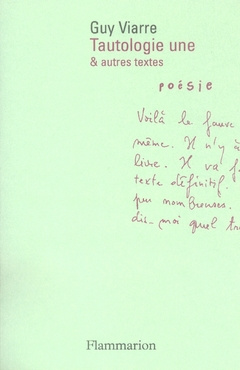 Guy Viarre
Tautologie une
& autres textes
poésie
Voilà le fauve
même. Il n'y a
livre. Il va f
texte définitif.
peu nombreuses.
dis-moi quel tr
Flammarion